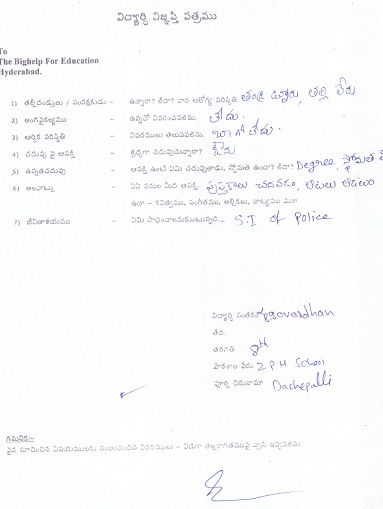 విద్యార్ధి విజ్ఞప్తి పత్రము
To
The Bighelp For Education
Hyderabad.
1) తల్లిదండ్రులు / సంరక్షకుడు - ఉన్నారా? లేదా? వారి ఆరోగ్య పరిస్థితి. తండ్రి ఉన్నారు, తల్లి లేరు
2) అంగవైకల్యము - ఉన్నచో వివరించవలెను. లేదు.
3) ఆర్ధిక పరిస్థితి - వివరములు తెలుపవలెను. బాగోలేదు.
4) చదువు పై ఆసక్తి - శ్రద్ధగా చదువుచున్నారా?
5) ఉన్నతచదువు - ఆసక్తి ఉంటే ఏమి చదువుతాడు, స్తోమత ఉందా? లేదా? Degree, స్తోమత
6) అలవాట్లు - ఏఏ పనుల మీద ఆసక్తి పుస్తకాలు చదవడం, ఆటలు ఆడటం
ఉదా - కవిత్వము, సంగీతము, అల్లికలు, నాట్యము మొ॥
7) జీవితాశయము - ఏమి సాధించాలనుకుంటున్నది. S.I of Police
విద్యార్ధి సంతకం govardhan
తేది.
తరగతి 8th
పాఠశాల పేరు Z P H School
పూర్తి చిరునామా Dachepalli
గమనిక:-
పైన సూచించిన విషయములకు సంబంధించిన వివరములు - విడిగా తెల్లకాగితముపై వ్రాసి ఇవ్వవలెను.